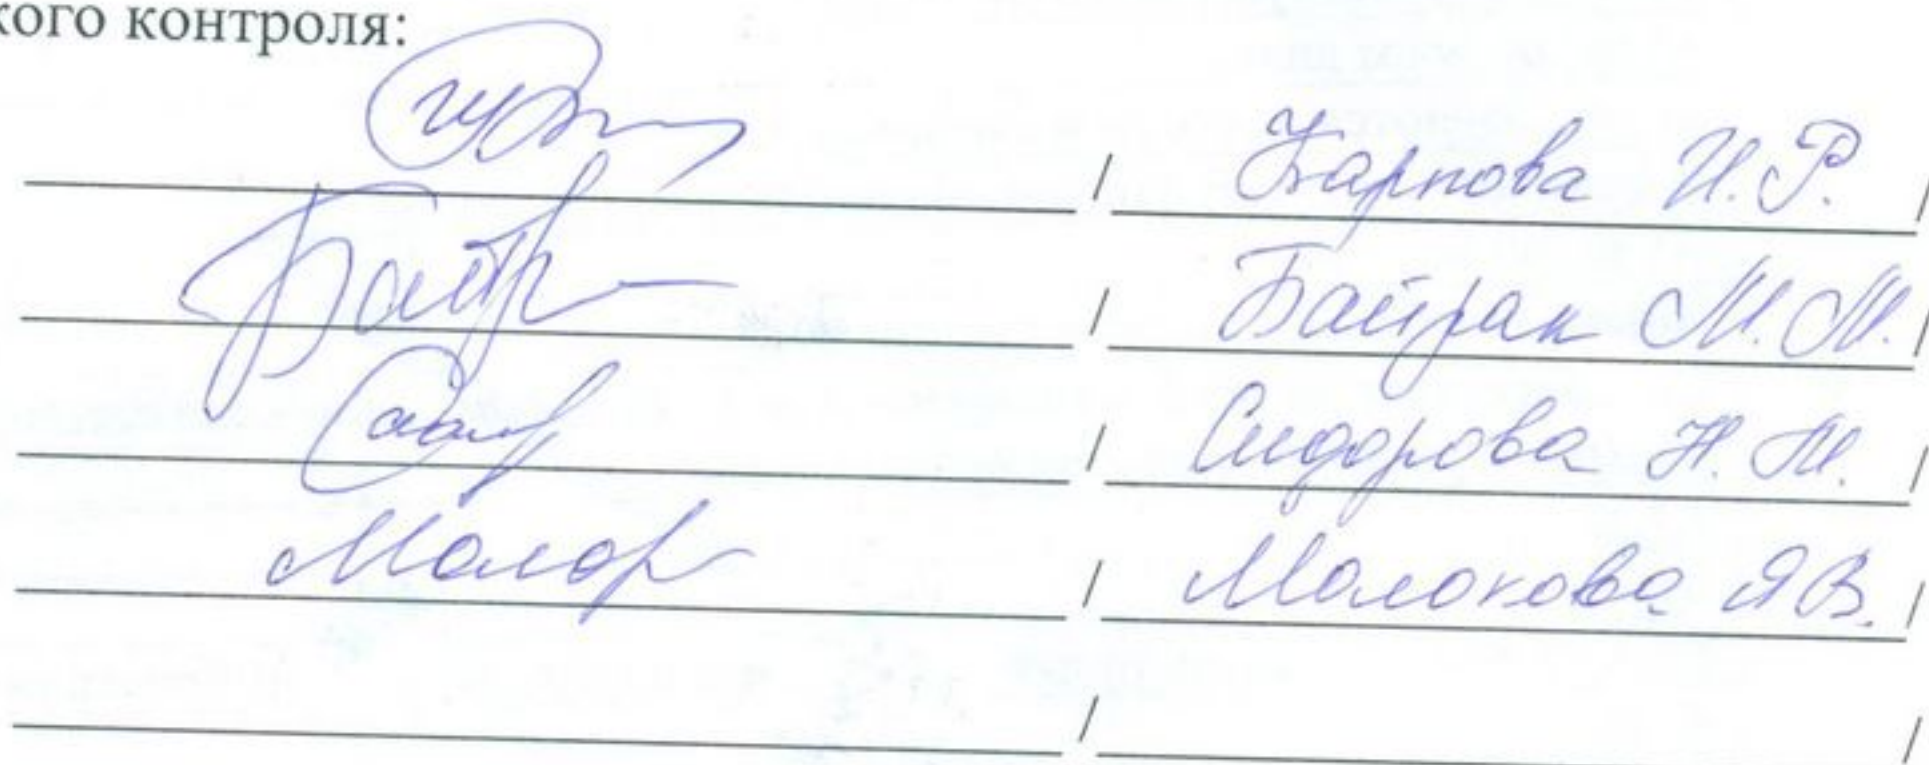 кого контроля:
/ Карпова И. Р. /
/ Байрак М. М. /
/ Сидорова Н. М. /
/ Молокова Я В. /
/ /